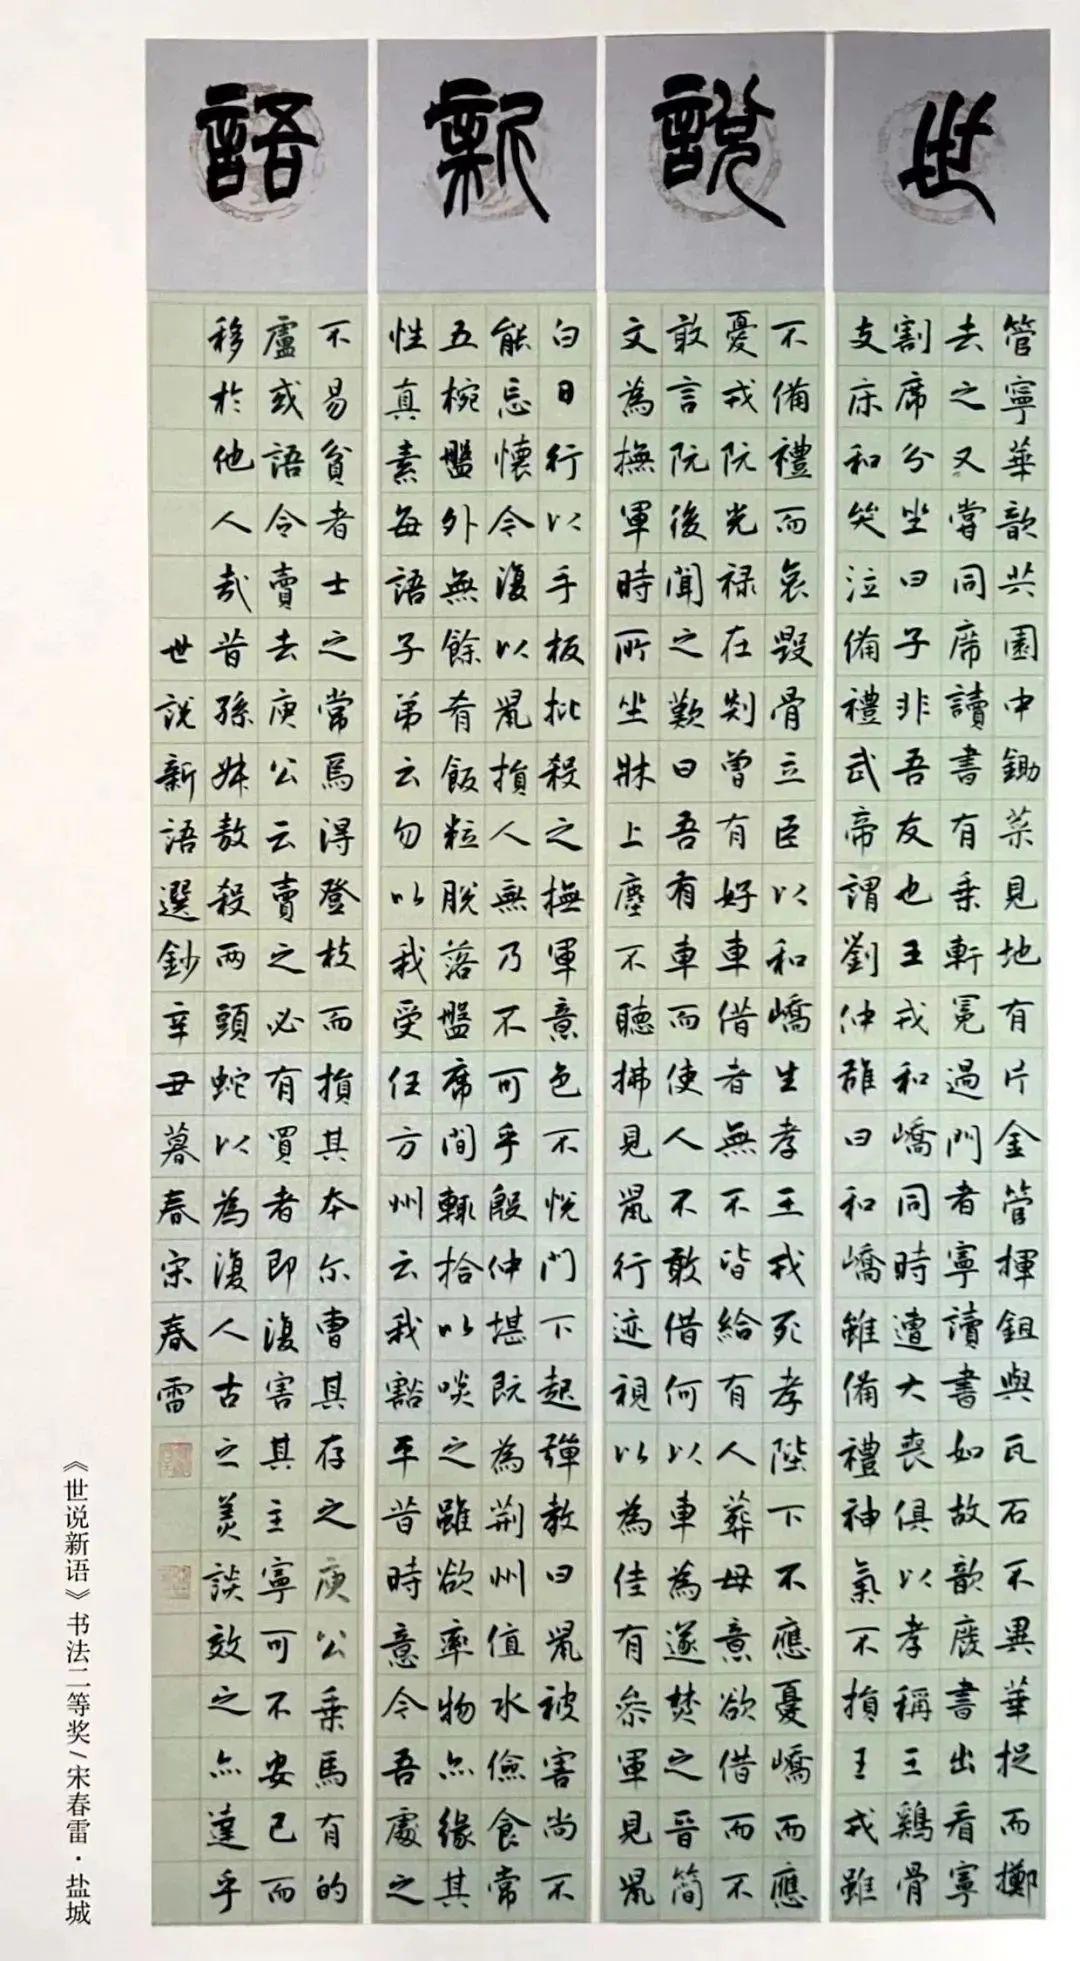 世
說
新
語
管寧華歆共園中鋤菜見地有片金管揮鉏與瓦石不異華捉而擲
去之又嘗同席讀書有乘軒冕過門者寧讀書如故歆廢書出看寧
割席分坐曰子非吾友也王戎和嶠同時遭大喪俱以孝稱王鷄骨
支床和哭泣備禮武帝謂劉仲雄曰和嶠雖備禮神氣不損王戎雖
不備禮而哀毀骨立臣以和嶠生孝王戎死孝陛下不應憂嶠而應
憂戎阮光禄在剡曾有好車借者無不皆給有人葬母意欲借而不
敢言阮後聞之歎曰吾有車而使人不敢借何以車為遂焚之晉簡
文為撫軍時所坐牀上塵不聽拂見鼠行迹視以為佳有參軍見鼠
白日行以手板批殺之撫軍意色不悅門下起彈教曰鼠被害尚不
能忘懷今復以鼠損人無乃不可乎殷仲堪既為荊州值水儉食常
五椀盤外無餘肴飯粒脫落盤席間輒拾以啖之雖欲率物亦緣其
性真素每語子弟云勿以我受任方州云我豁平昔時意今吾處之
不易貧者士之常焉得登枝而損其本尔曹其存之庾公乘馬有的
盧或語令賣去庾公云賣之必有買者即復害其主寧可不安己而
移於他人哉昔孫叔敖殺兩頭蛇以為復人古之美談效之亦達乎
世說新語選鈔辛丑暮春宋春雷
《世说新语》书法二等奖/宋春雷·盐城